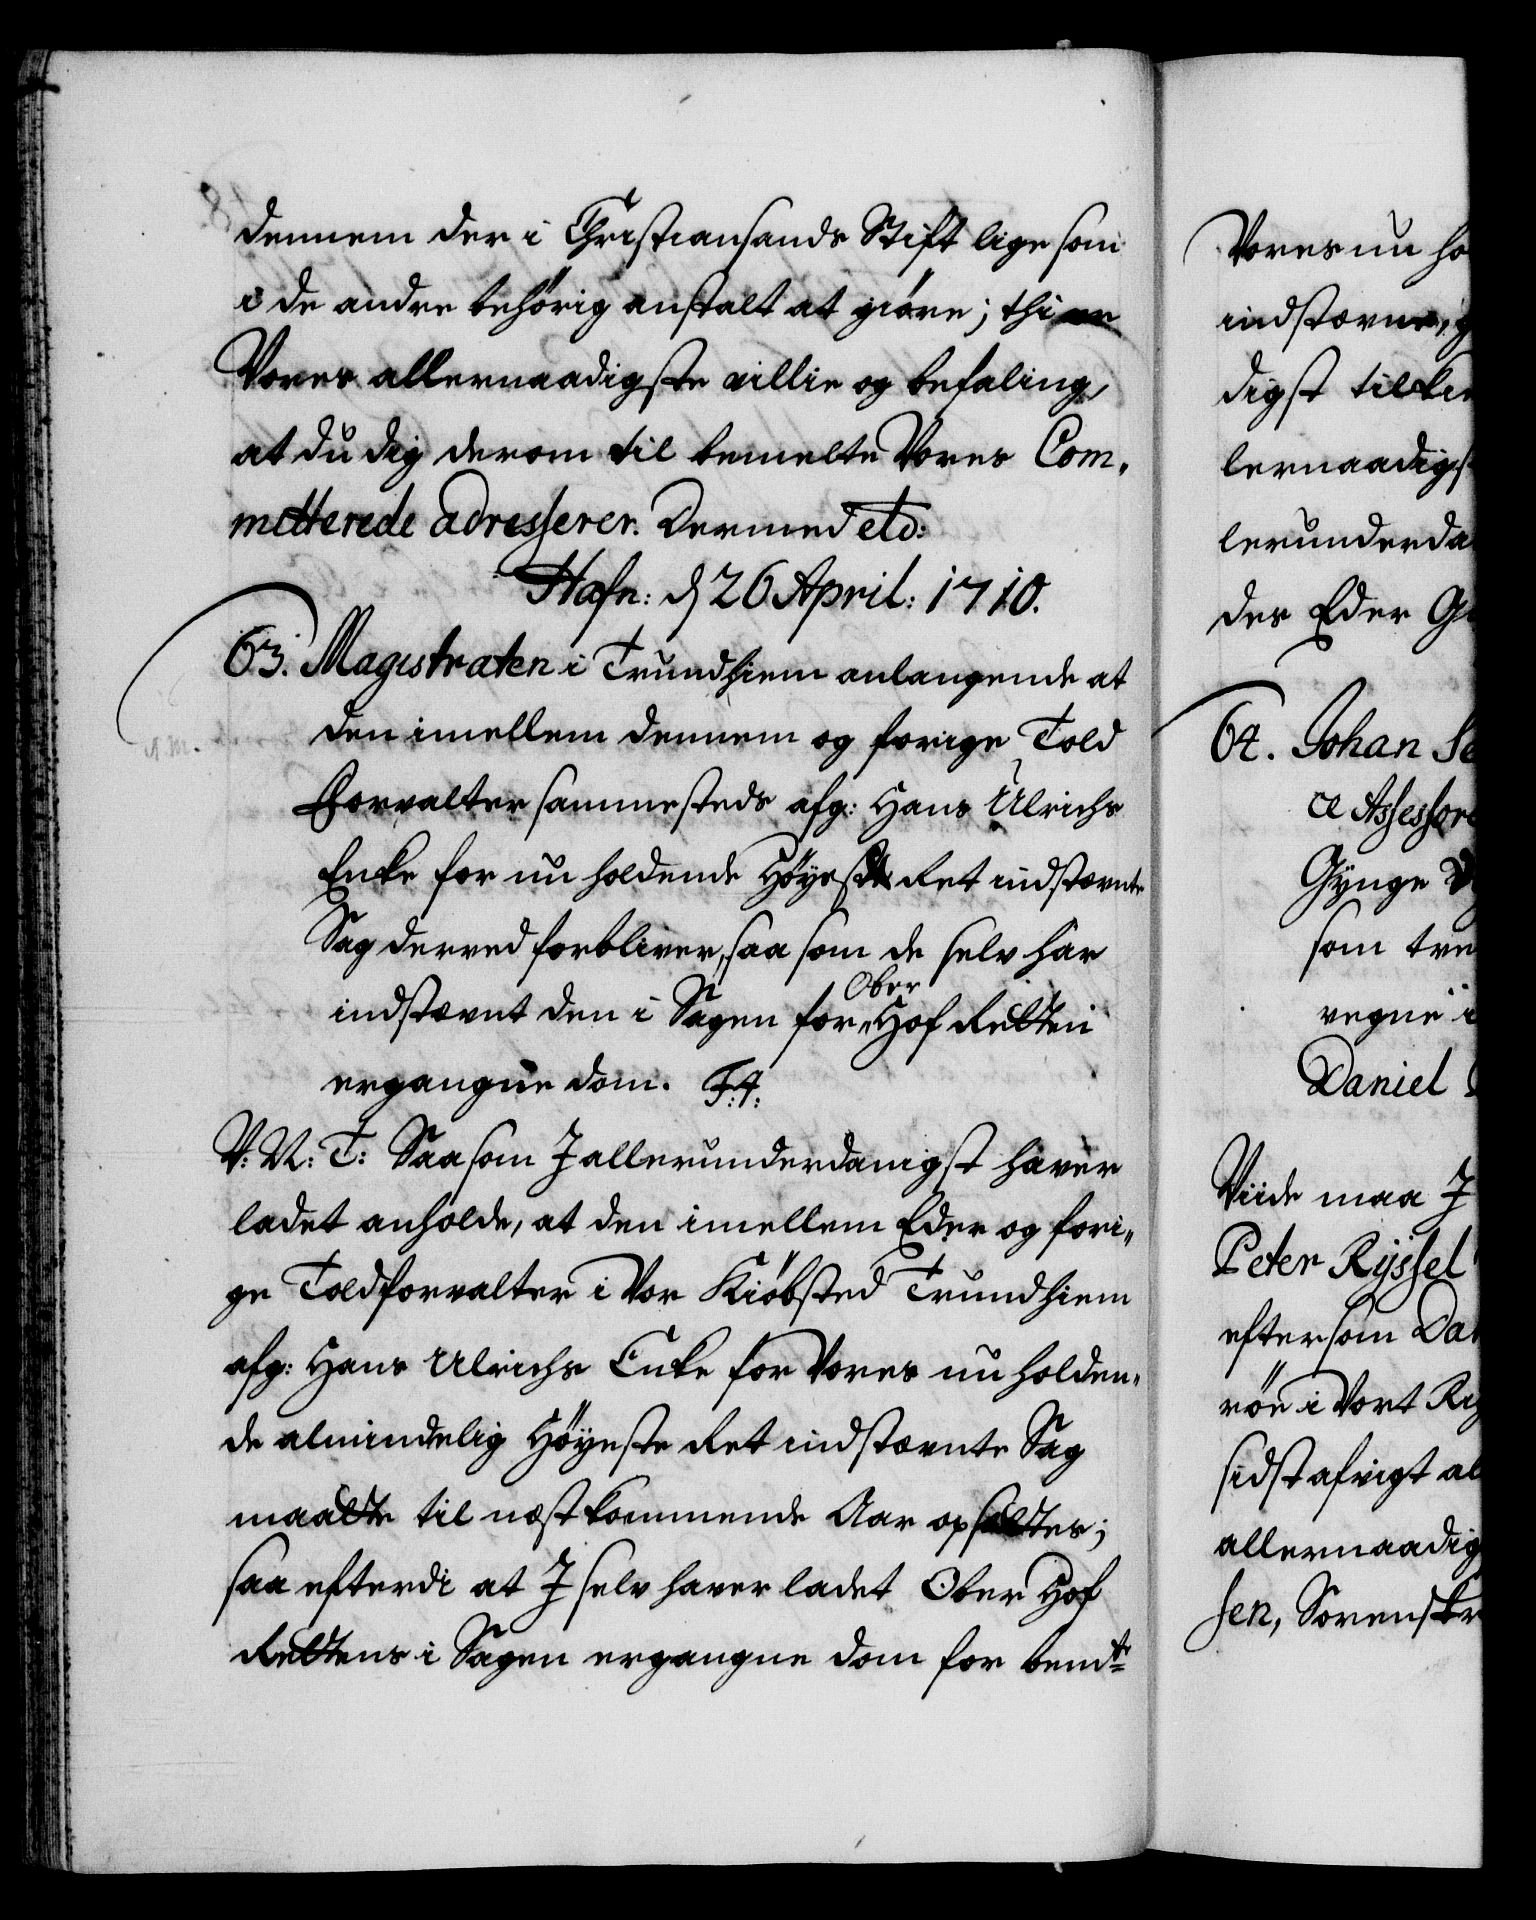 dennem der i Christiansands Stift lige som
i de andre behörig anstalt at giöre; thi er
Vores allernaadigste villie og befaling,
at du dig derom til bemelte Vores Com„
mitterede adresserer. Dermed etc:
Hafn: d 26 April: 1710.
63. Magistraten i Trundhiem anlangende at
den imellem dennem og forige Told
Forvalter sammesteds afg: Hans Ulrichs
Enke for nu holdende Höyeste Ret indstævnte
Sag derved forbliver, saa som de selv har
indstævnt den i Sagen for Ober Hof Retten
ergangne dom. F.4.
V: N: T: Saasom J allerunderdanigst haver
ladet anholde, at den imellem Eder og fori„
ge Toldforvalter i Vor Kiöbsted Trundhiem
afg: Hans Ulrichs Enke for Vores nu holden„
de almindelig Höyeste Ret indstævnte Sag
maatte til næstkommende Aar opsættes;
saa efterdi at J selv haver ladet Ober Hof
Rettens i Sagen ergangne dom for bemte
Vores nu ho
indstævne,
digst tilkie
lernaadigst
lerunderda
des Eder G
64. Johan Se
ce Assessore
Gynge
som tre
vegne i
Daniel
Viide maa J
Peter Ryssel
eftersom Da
röe i Vort Ri
sidst afvigt al
allernaadig
sen, Sorenskr